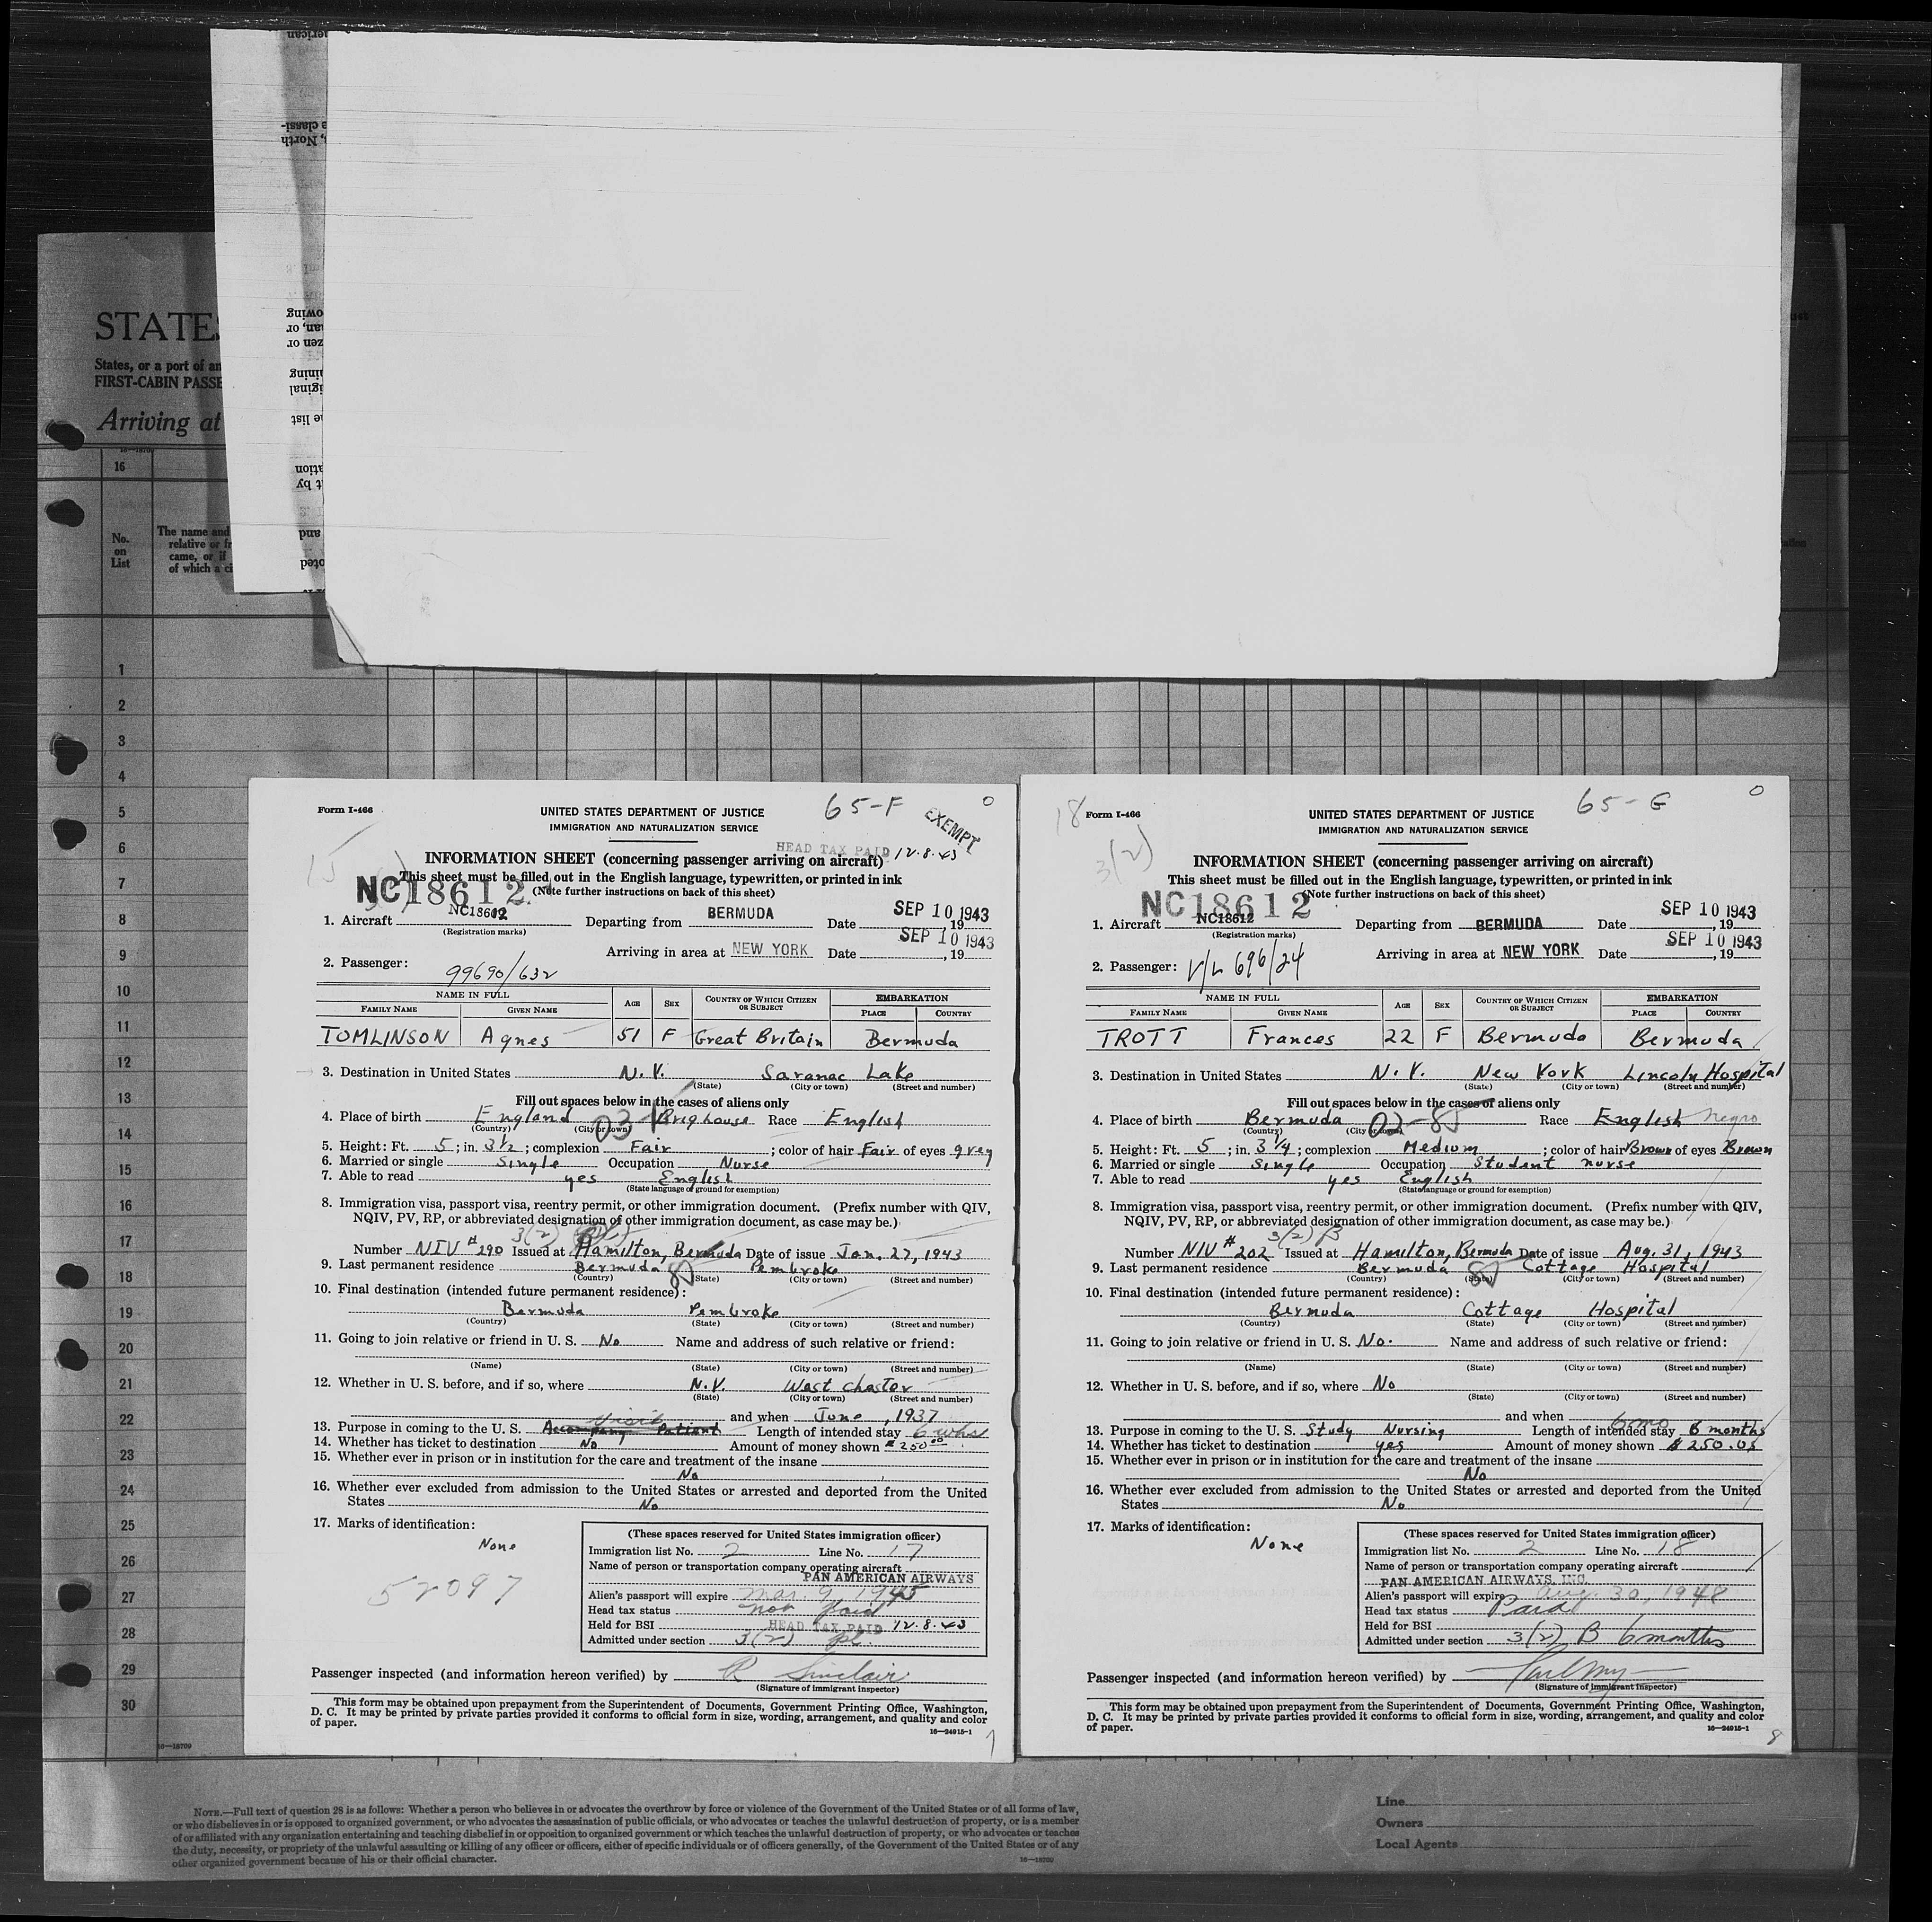 STATES
States, or a port of an
FIRST-CABIN PASSE
Arriving at
16
No.
on
List
The name and
relative or fr
came, or if
of which a ci
1
2
3
4
5
6
7
8
9
10
11
12
13
14
15
16
17
18
19
20
21
22
23
24
25
26
27
28
29
30
16—18709
65-F
O
Form I-466
UNITED STATES DEPARTMENT OF JUSTICE
IMMIGRATION AND NATURALIZATION SERVICE
EXEMPT
15
HEAD TAX PAID 12.8.43
INFORMATION SHEET (concerning passenger arriving on aircraft)
This sheet must be filled out in the English language, typewritten, or printed in ink
NC18612 (Note further instructions on back of this sheet)
1. Aircraft NC18602 Departing from BERMUDA Date SEP 10 1943, 19
(Registration marks)
Arriving in area at NEW YORK Date SEP 10 1943, 19
2. Passenger: 99690/632
NAME IN FULL AGE SEX COUNTRY OF WHICH CITIZEN OR SUBJECT EMBARKATION
FAMILY NAME GIVEN NAME PLACE COUNTRY
TOMLINSON Agnes 51 F Great Britain Bermuda
3. Destination in United States N.Y. Saranac Lake
(State) (City or town) (Street and number)
Fill out spaces below in the cases of aliens only
4. Place of birth England 03 Brighouse Race English
(Country) (City or town)
5. Height: Ft. 5; in. 3 1/2; complexion Fair; color of hair Fair of eyes grey
6. Married or single Single Occupation Nurse
7. Able to read yes English
(State language or ground for exemption)
8. Immigration visa, passport visa, reentry permit, or other immigration document. (Prefix number with QIV,
NQIV, PV, RP, or abbreviated designation of other immigration document, as case may be.)
3(2)
Number NIV #290 Issued at Hamilton, Bermuda Date of issue Jan. 27, 1943
9. Last permanent residence Bermuda Pembroke
(Country) (State) (City or town) (Street and number)
10. Final destination (intended future permanent residence):
Bermuda Pembroke
(Country) (State) (City or town) (Street and number)
11. Going to join relative or friend in U. S. No Name and address of such relative or friend:
(Name) (State) (City or town) (Street and number)
12. Whether in U. S. before, and if so, where N.Y. West chester
(State) (City or town) (Street and number)
and when June, 1937
Visit
13. Purpose in coming to the U. S. Accompany Patient Length of intended stay 6 whs
14. Whether has ticket to destination No Amount of money shown $250.00
15. Whether ever in prison or in institution for the care and treatment of the insane
No
16. Whether ever excluded from admission to the United States or arrested and deported from the United
States No
17. Marks of identification:
None
52097
(These spaces reserved for United States immigration officer)
Immigration list No. 2 Line No. 17
Name of person or transportation company operating aircraft
PAN AMERICAN AIRWAYS
Alien's passport will expire Mar. 9, 1945
Head tax status not paid
Held for BSI HEAD TAX PAID 12.8.43
Admitted under section 3(2)
Passenger inspected (and information hereon verified) by R Sinclair
(Signature of immigrant inspector)
This form may be obtained upon prepayment from the Superintendent of Documents, Government Printing Office, Washington,
D. C. It may be printed by private parties provided it conforms to official form in size, wording, arrangement, and quality and color
of paper.
16—24915-1
7
65-G
O
18
Form I-466
UNITED STATES DEPARTMENT OF JUSTICE
IMMIGRATION AND NATURALIZATION SERVICE
3(2)
INFORMATION SHEET (concerning passenger arriving on aircraft)
This sheet must be filled out in the English language, typewritten, or printed in ink
NC18612 (Note further instructions on back of this sheet)
1. Aircraft NC18612 Departing from BERMUDA Date SEP 10 1943, 19
(Registration marks)
Arriving in area at NEW YORK Date SEP 10 1943, 19
2. Passenger: V/L 696/24
NAME IN FULL AGE SEX COUNTRY OF WHICH CITIZEN OR SUBJECT EMBARKATION
FAMILY NAME GIVEN NAME PLACE COUNTRY
TROTT Frances 22 F Bermuda Bermuda
3. Destination in United States N.Y. New York Lincoln Hospital
(State) (City or town) (Street and number)
Fill out spaces below in the cases of aliens only
4. Place of birth Bermuda 02-85 Race English negro
(Country) (City or town)
5. Height: Ft. 5; in. 3 1/4; complexion Medium; color of hair Brown of eyes Brown
6. Married or single Single Occupation Student nurse
7. Able to read yes English
(State language or ground for exemption)
8. Immigration visa, passport visa, reentry permit, or other immigration document. (Prefix number with QIV,
NQIV, PV, RP, or abbreviated designation of other immigration document, as case may be.)
3(2) B
Number NIV #202 Issued at Hamilton, Bermuda Date of issue Aug. 31, 1943
9. Last permanent residence Bermuda Cottage Hospital
(Country) (State) (City or town) (Street and number)
10. Final destination (intended future permanent residence):
Bermuda Cottage Hospital
(Country) (State) (City or town) (Street and number)
11. Going to join relative or friend in U. S. No. Name and address of such relative or friend:
(Name) (State) (City or town) (Street and number)
12. Whether in U. S. before, and if so, where No
(State) (City or town) (Street and number)
and when
6mo
13. Purpose in coming to the U. S. Study Nursing Length of intended stay 6 months
14. Whether has ticket to destination yes Amount of money shown $250.05
15. Whether ever in prison or in institution for the care and treatment of the insane
No
16. Whether ever excluded from admission to the United States or arrested and deported from the United
States No
17. Marks of identification:
None
(These spaces reserved for United States immigration officer)
Immigration list No. 2 Line No. 18
Name of person or transportation company operating aircraft
PAN AMERICAN AIRWAYS, INC.
Alien's passport will expire Aug. 30, 1948
Head tax status Paid
Held for BSI
Admitted under section 3(2) B 6 months
Passenger inspected (and information hereon verified) by
(Signature of immigrant inspector)
This form may be obtained upon prepayment from the Superintendent of Documents, Government Printing Office, Washington,
D. C. It may be printed by private parties provided it conforms to official form in size, wording, arrangement, and quality and color
of paper.
16—24915-1
8
NOTE.—Full text of question 28 is as follows: Whether a person who believes in or advocates the overthrow by force or violence of the Government of the United States or of all forms of law,
or who disbelieves in or is opposed to organized government, or who advocates the assassination of public officials, or who advocates or teaches the unlawful destruction of property, or is a member
of or affiliated with any organization entertaining and teaching disbelief in or opposition to organized government or which teaches the unlawful destruction of property, or who advocates or teaches
the duty, necessity, or propriety of the unlawful assaulting or killing of any officer or officers, either of specific individuals or of officers generally, of the Government of the United States or of any
other organized government because of his or their official character.
16—18700
Line
Owners
Local Agents